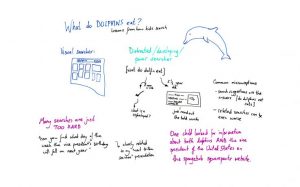 What do DOLPHINS eat?
Lessons from how kids search
Visual searcher
Distracted/developing/
power searcher
what do dolfin eat?
what is a
cephalopod?
just read out
the bold words
Common misconceptions
- search suggestions are the
answers (do dolphins eat
- related searches can be
even worse
Many searches are just
TOO HARD
"Can you find what day of the
week the vice president's birthday
will fall on next year"
closely related
to my
presentation
One child looked for information
about both dolphins AND the vice
president of the United States on
the spongebob squarepants website.